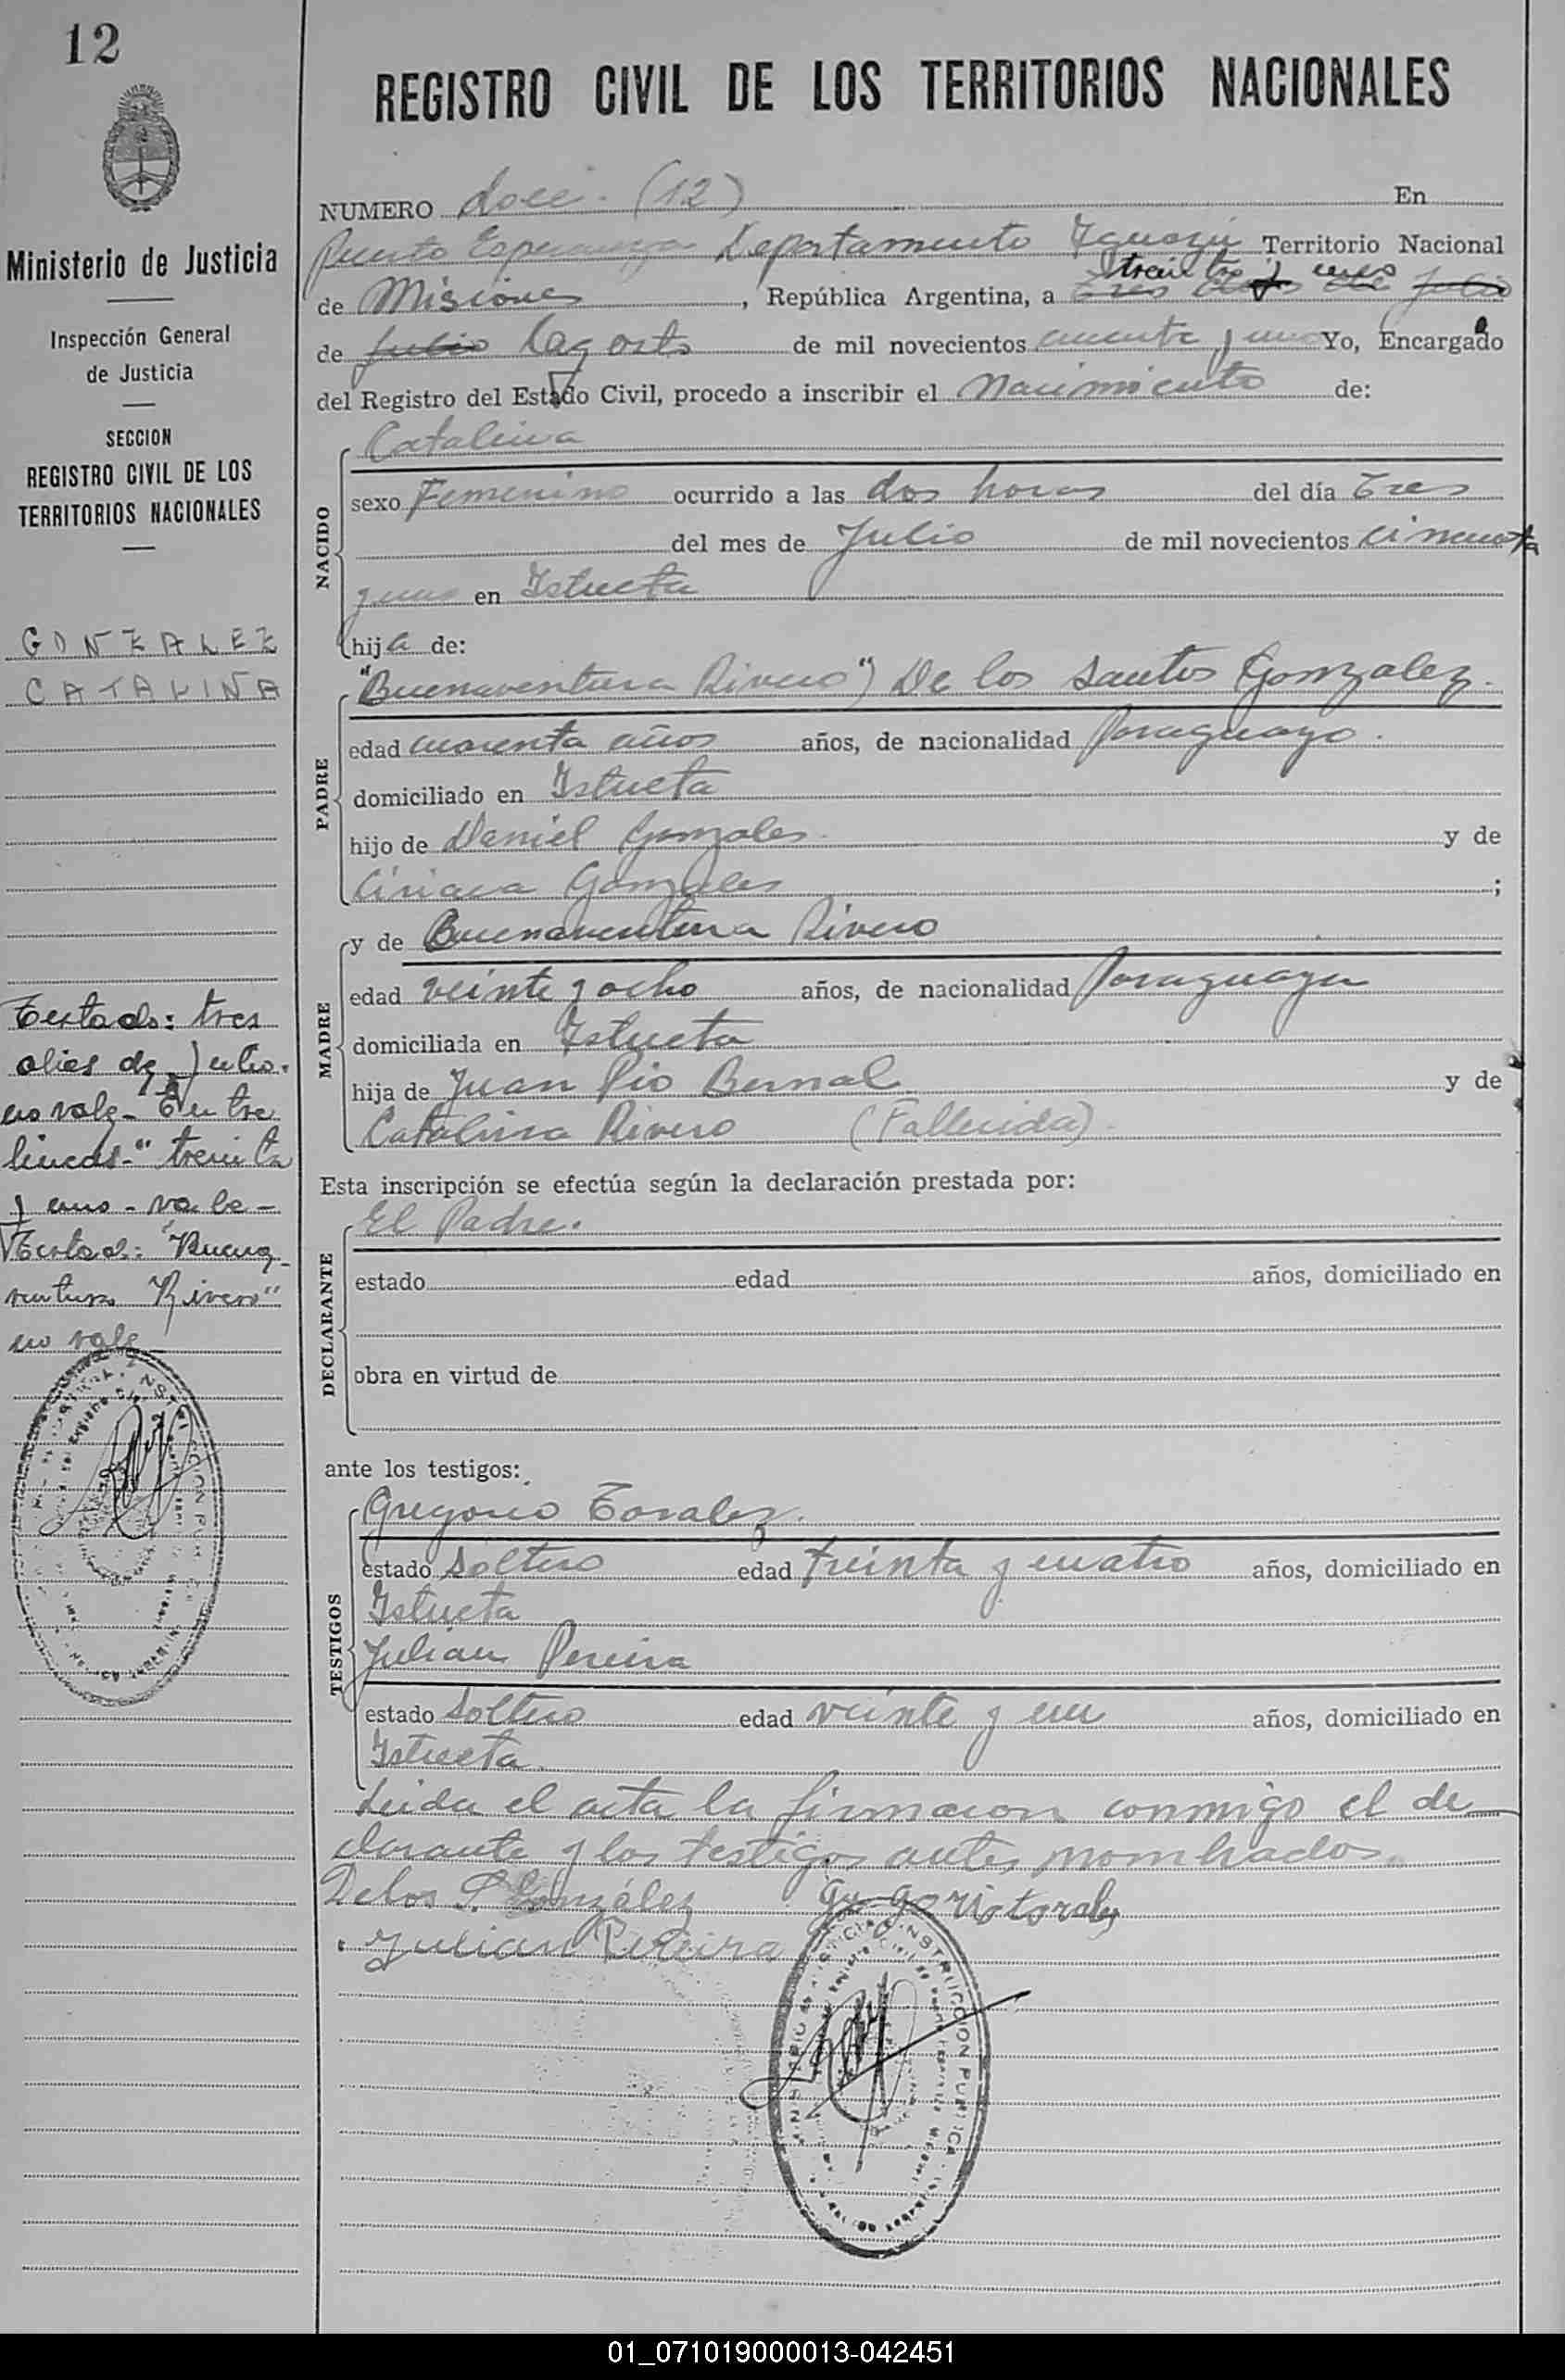 12
Ministerio de Justicia
Inspección General
de Justicia
SECCION
REGISTRO CIVIL DE LOS
TERRITORIOS NACIONALES
GONZALEZ
CATALINA
Testado: tres
dias de Julio.
no vale - Entre
lineas - "treinta
y uno - vale -
Testad: "Buena
ventura Rivero"
no vale
REGISTRO CIVIL DE LOS TERRITORIOS NACIONALES
NUMERO doce - (12) En
Puerto Esperanza Departamento Iguazú Territorio Nacional
treinta y uno
de Misiones, República Argentina, a tres dias de Julio
de Julio Agosto de mil novecientos cincuenta y uno Yo, Encargado
del Registro del Estado Civil, procedo a inscribir el Nacimiento de:
NACIDO
Catalina
sexo Femenino ocurrido a las dos horas del día Tres
del mes de Julio de mil novecientos cincuenta
y uno en Istueta
hija de:
PADRE
"Buenaventura Rivero") De los Santos Gonzalez.
edad cuarenta años años, de nacionalidad Paraguayo.
domiciliado en Istueta
hijo de Daniel Gonzales y de
Ciriaca Gonzales ;
MADRE
y de Buenaventura Rivero
edad veinte y ocho años, de nacionalidad Paraguaya
domiciliada en Istueta
hija de Juan Pio Bernal y de
Catalina Rivero (Fallecida).
Esta inscripción se efectúa según la declaración prestada por:
DECLARANTE
El Padre.
estado edad años, domiciliado en
obra en virtud de
ante los testigos:
TESTIGOS
Gregorio Torales.
estado Soltero edad treinta y cuatro años, domiciliado en
Istueta
Julian Pereira
estado Soltero edad veinte y un años, domiciliado en
Istueta
Leida el acta la firmaron conmigo el de
clarante y los testigos antes nombrados.
Delos S. González Gregorio torales
Julian Pereira
01_071019000013-042451